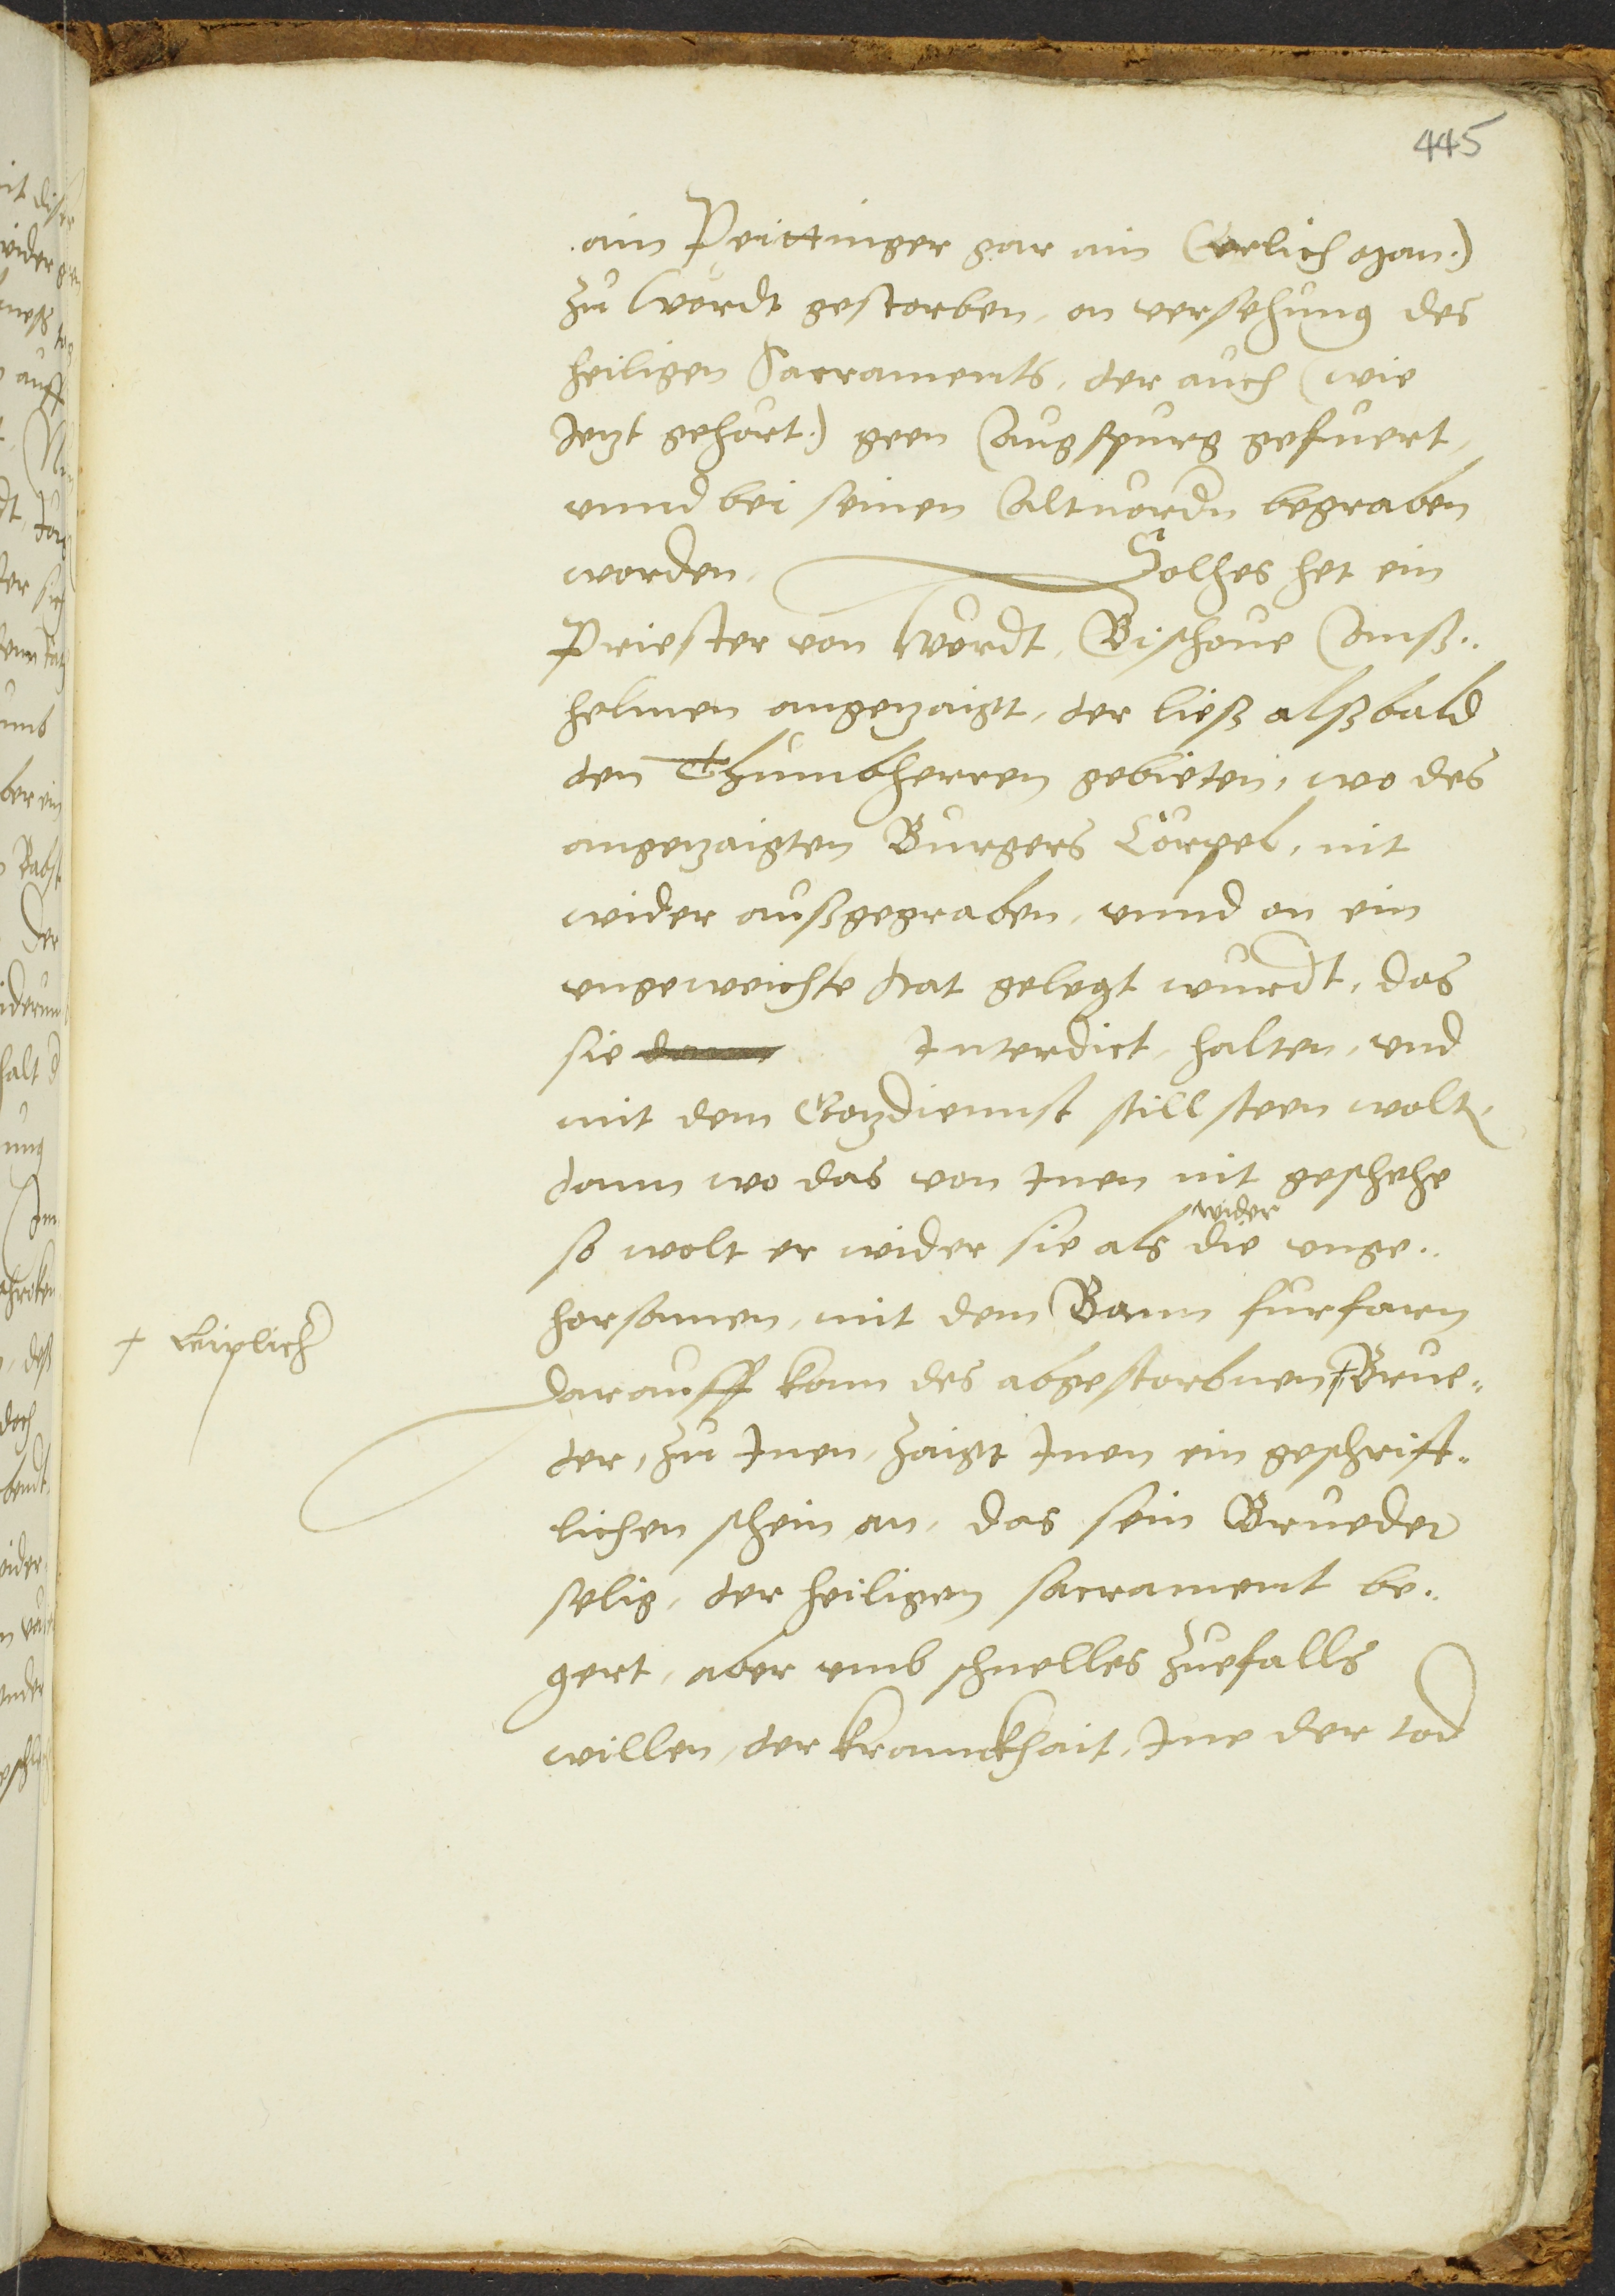 445
ain Peittinger gar ain Eerlich man.)
zu Wördt gestorben, on versehung des
heiligen Sacraments, der auch (wie
Jetzt gehört.) geen Augspurg gefuert,
vnnd bei seinen Altuordn begraben
worden, Solhes het ein
Priester von Wördt, Bischoue Anß..
helmen angezaigt, der ließ alßbald
den Thumbherren gebieten, wo des
angezaigten Burgers Cörpel, nit
wider außgegraben, vnnd an ein
vngeweichte stat gelegt wurdt, das
sie Interdict, halten, vnd
mit dem Gotzdiennst still steen wolt,
dann wo das von Inen nit geschehe
so wolt er wider sie als wider die vnge..
horsamen, mit dem Bann furfarn
+ Leiplich
darauff kam des abgestorbnen + Brue„
der, zu Inen, zaigt Inen ein geschrift„
lichen schein an, das sein Brueder
selig, der heiligen sacrament be„
gert, aber vmb schnelles zuefalls
willen, der kranckhait, Ine der tod